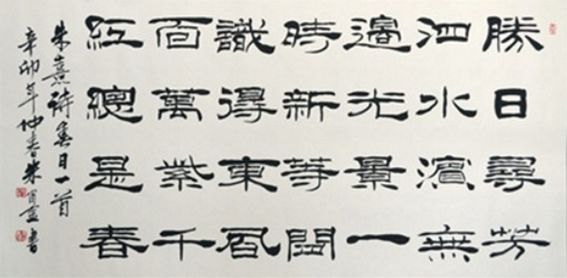 勝日尋芳
泗水濱無
邊光景一
時新等閒
識得東風
面萬紫千
紅總是春
朱熹詩春日一首
辛卯年仲春朱書